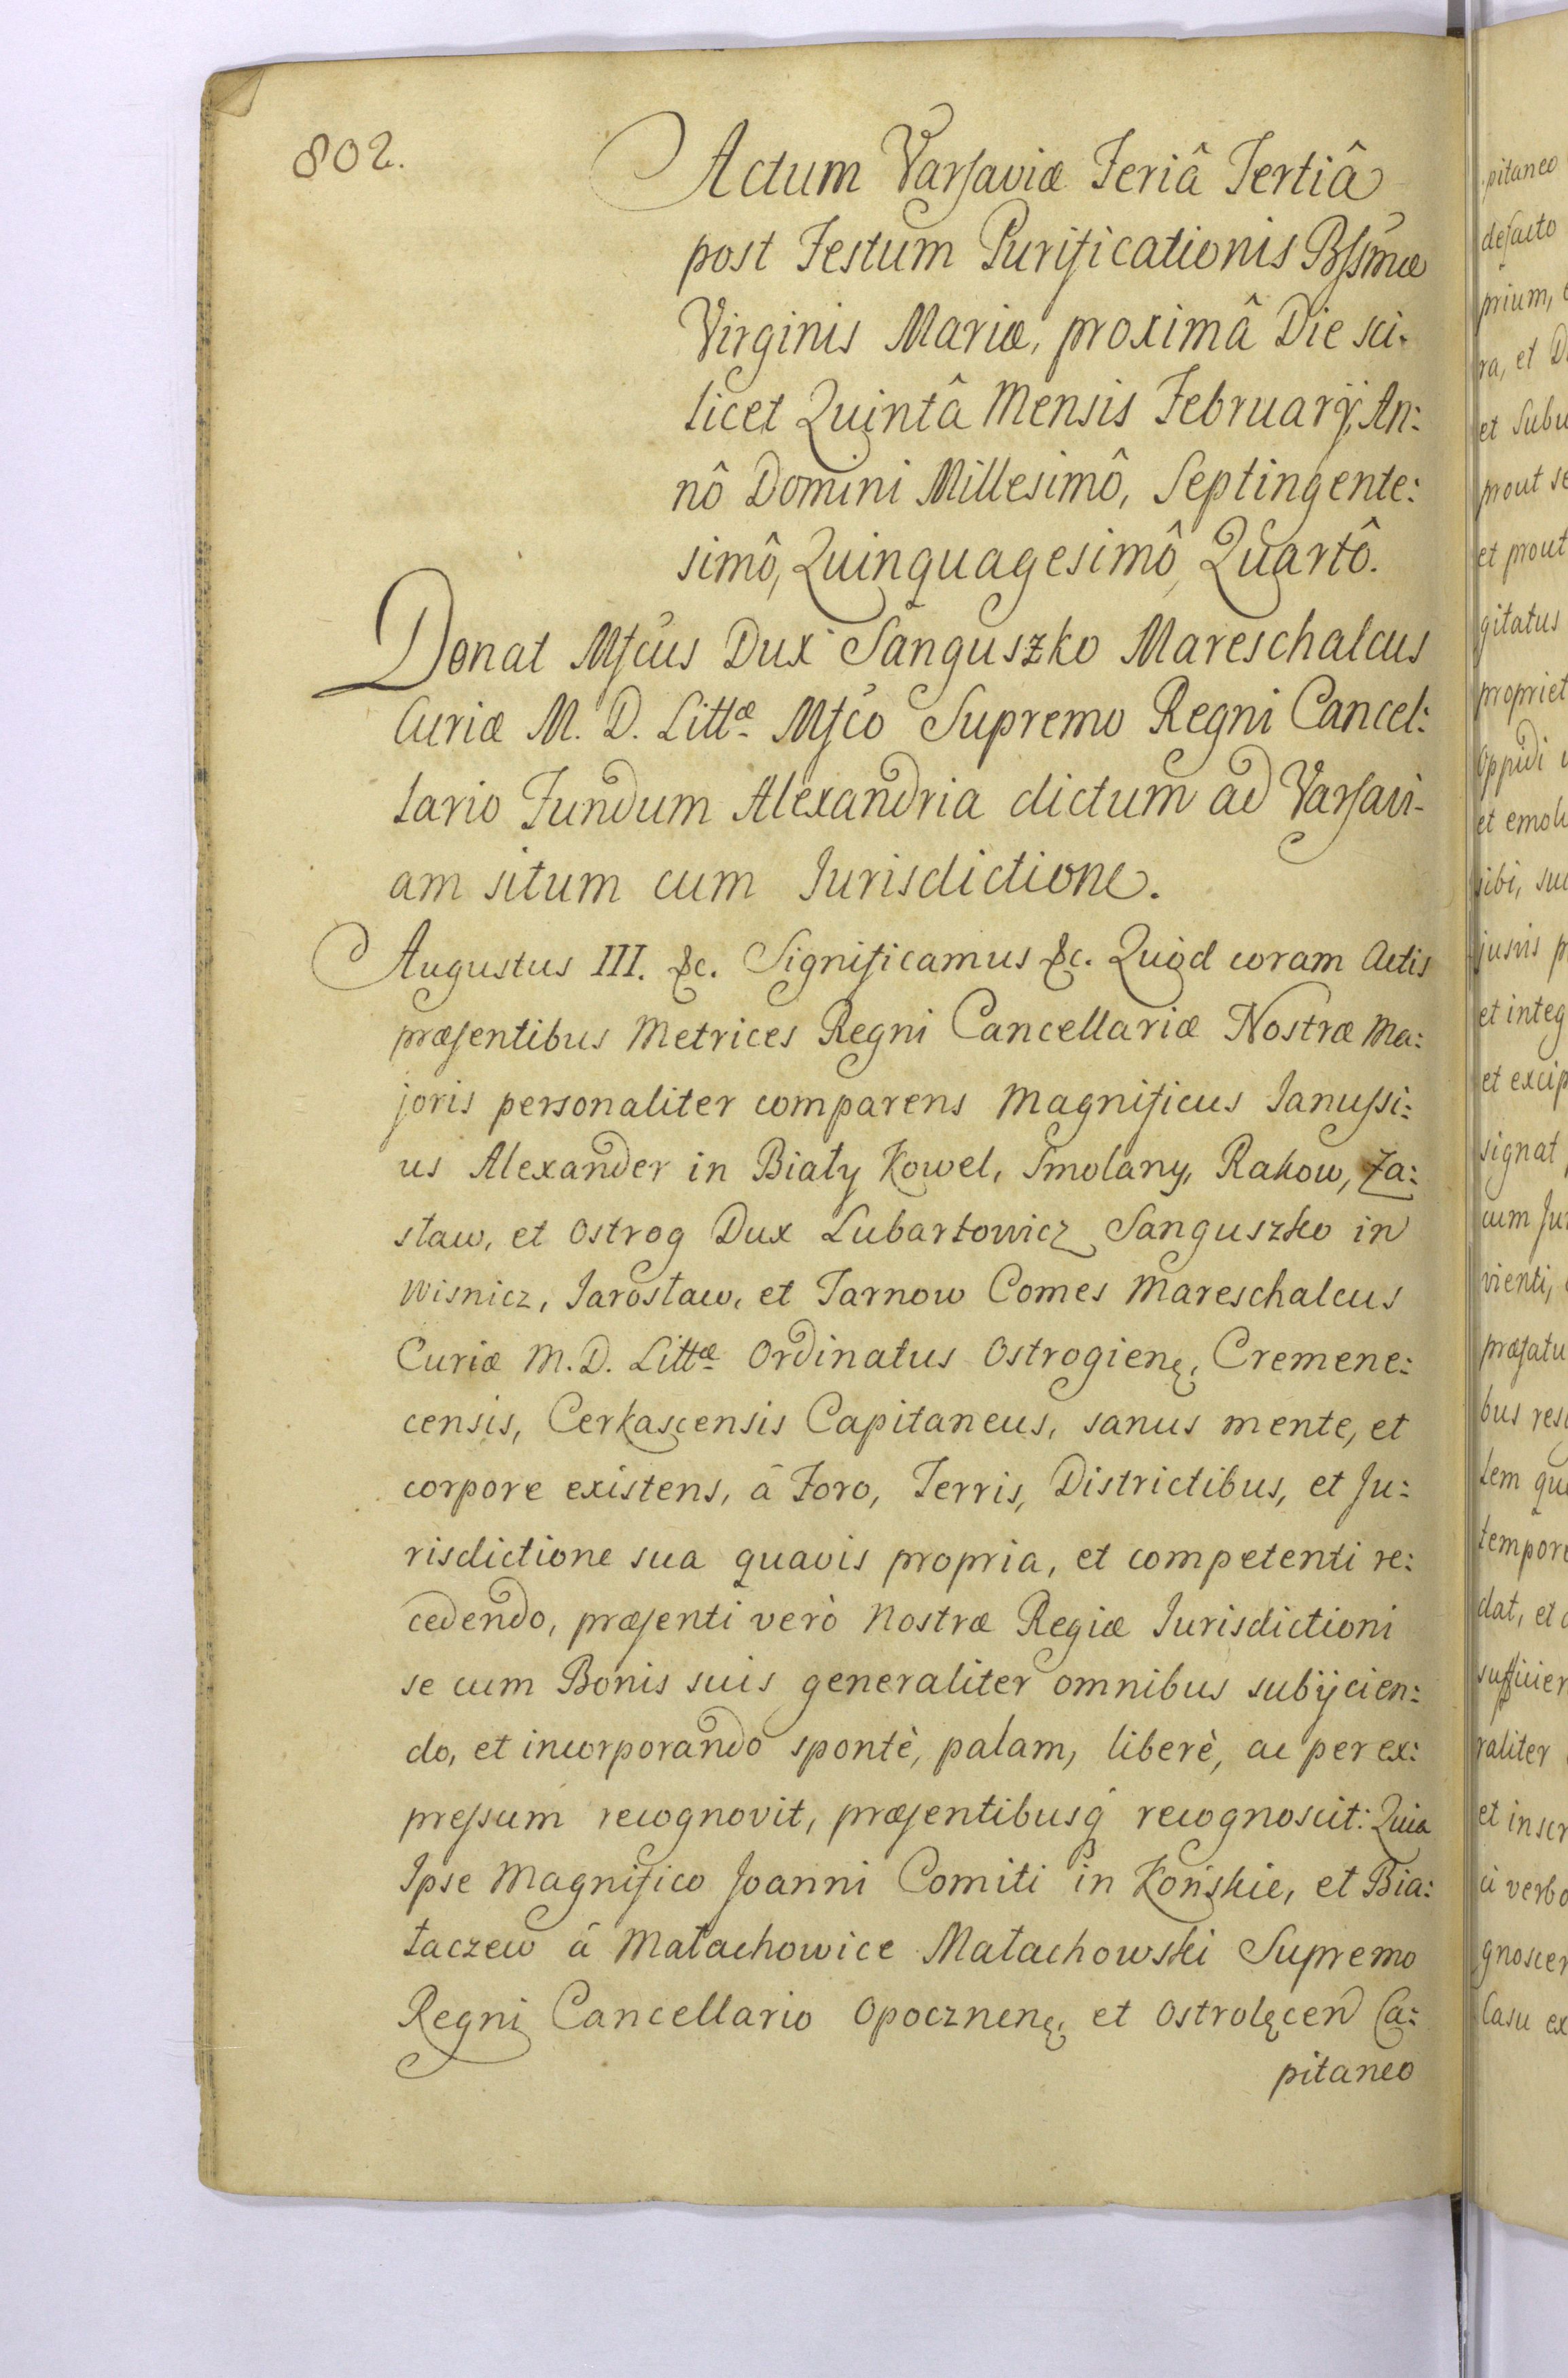 802.
Actum Varsaviæ Feriâ Tertiâ
post Festum Purificationis Bssmæ
Virginis Mariæ, proximâ Die sci-
licet Quintâ Mensis Februarij, An:
nô Domini Millesimô, Septingente:
simô, Quinquagesimô, Quartô.
Donat Mfcus Dux Sanguszko Mareschalcus
Curiæ M. D. Littæ Mfco Supremo Regni Cancel:
lario Fundum Alexandria dictum ad Varsavi-
am situm cum Jurisdictione.
Augustus III. &c. Significamus &c. Quod coram Actis
præsentibus Metrices Regni Cancellariæ Nostræ Ma:
joris personaliter comparens Magnificus Janussi:
us Alexander in Biały Kowel, Smolany, Rakow, Za:
sław, et Ostrog Dux Lubartowicz Sanguszko in
Wisnicz, Jarosław, et Tarnow Comes Mareschalcus
Curiæ M. D. Littæ Ordinatus Ostrogienę, Cremene:
censis, Cerkascensis Capitaneus, sanus mente, et
corpore existens, â Foro, Terris, Districtibus, et Ju:
risdictione sua quavis propria, et competenti re:
cedendo, præsenti verò Nostræ Regiæ Jurisdictioni
se cum Bonis suis generaliter omnibus subijcien:
do, et incorporando spontè, palam, liberè, ac per ex:
pressum recognovit, præsentibusq recognoscit: Quia
Ipse Magnifico Joanni Comiti in Końskie, et Bia:
łaczew â Małachowice Małachowski Supremo
Regni Cancellario Opocznenę, et Ostrolęcen Ca:
pitaneo
pitaneo
defacto
prium,
ra, et
et subu
prout se
et prout
gitatus
propriet
Oppidi
et emol
sibi, su
jusvis p
et integ
et excip
signat
cum Ju
vienti,
præfatu
bus res
tem qu
tempor
dat, et
sufficien
raliter
et inscr
ci verbo
gnoscen
Casu ex